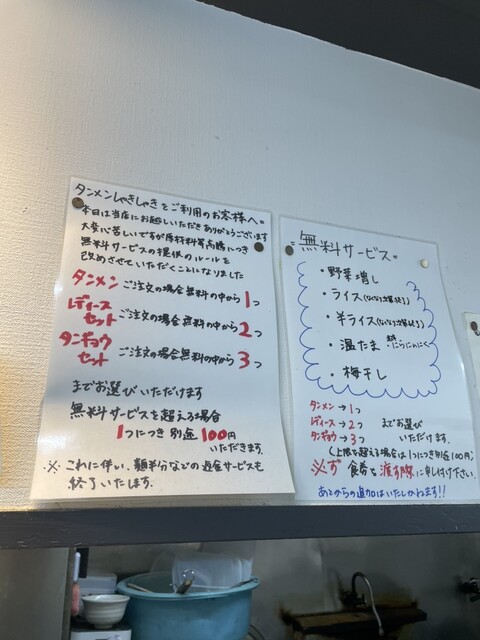 タンメンしゃきしゃきをご利用のお客様へ。
本日は当店にお越しいただきありがとうございます
大変心苦しいですが原材料等高騰につき
無料サービスの提供のルールを
改めさせていただくことになりました
タンメン ご注文の場合無料の中から1つ
レディースセット ご注文の場合無料の中から2つ
タンギョウセット ご注文の場合無料の中から3つ
までお選びいただけます
無料サービスを超える場合
1つにつき別途100円
いただきます.
※ これに伴い、麺半分などの返金サービスも
終了いたします.
無料サービス
・野菜増し
・ライス(なくなり次第終了)
・半ライス(なくなり次第終了)
・温たま
にらにんにく
・梅干し
タンメン→1つ
レディース→2つ
タンギョウ→3つ
までお選び
いただけます.
(上限を超える場合は1つにつき別途100円)
※必ず 食券を渡す際に申し付け下さい.
あとからの追加はいたしかねます!!